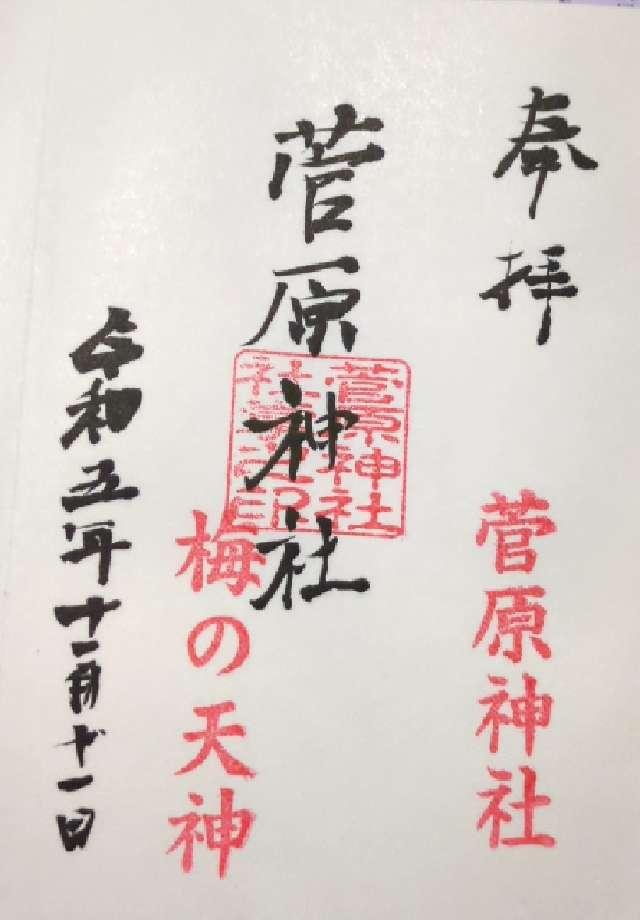 奉拝
菅原神社
菅原神社
菅原神社
社之印
梅の天神
令和五年十一月十一日